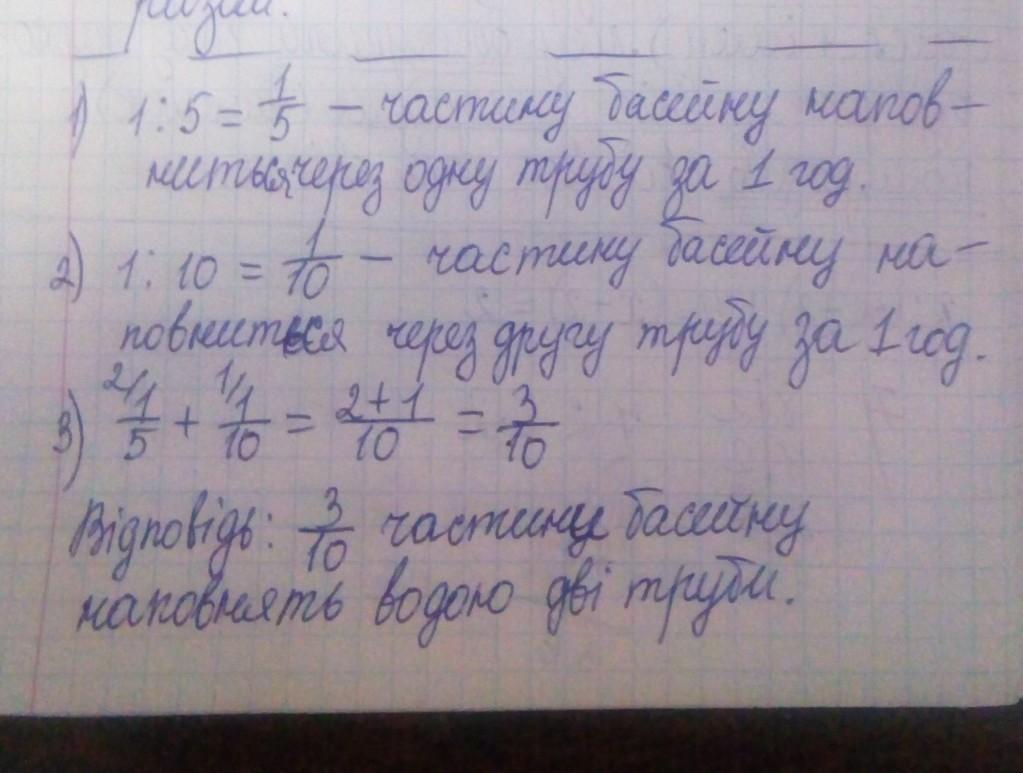 разом.
1) 1 : 5 = 1/5 – частину басейну напов-
ниться через одну трубу за 1 год.
2) 1 : 10 = 1/10 – частину басейну на-
повниться через другу трубу за 1 год.
3) 2/ 1/5 + 1/ 1/10 = 2+1/10 = 3/10
Відповідь: 3/10 частини басейну
наповнять водою дві труби.